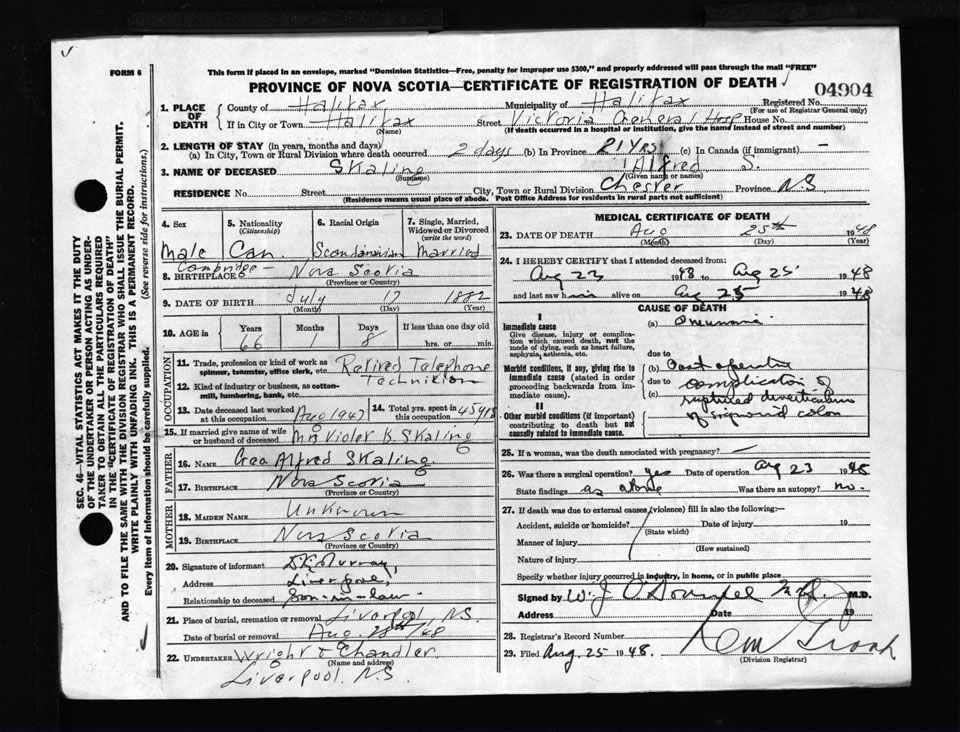 FORM 6
This form if placed in an envelope, marked "Dominion Statistics—Free, penalty for improper use $300," and properly addressed will pass through the mail "FREE"
PROVINCE OF NOVA SCOTIA—CERTIFICATE OF REGISTRATION OF DEATH
04904
1. PLACE OF DEATH
County of Halifax Municipality of Halifax Registered No.
(For use of Registrar General only)
If in City or Town Halifax Street Victoria General Hosp House No.
(Name) (If death occurred in a hospital or institution, give the name instead of street and number)
2. LENGTH OF STAY (in years, months and days)
(a) In City, Town or Rural Division where death occurred 2 days (b) In Province 21 yrs (c) In Canada (if immigrant) —
3. NAME OF DECEASED Skaling Alfred S.
(Surname) (Given name or names)
RESIDENCE No. Street City, Town or Rural Division Chester Province N.S
(Residence means usual place of abode. Post Office Address for residents in rural parts not sufficient)
4. Sex
Male
5. Nationality
(Citizenship)
Can.
6. Racial Origin
Scandanavian
7. Single, Married, Widowed or Divorced
(write the word)
Married
8. BIRTHPLACE Cambridge — Nova Scotia
(Province or Country)
9. DATE OF BIRTH July 17 1882
(Month) (Day) (Year)
10. AGE in Years Months Days If less than one day old
66 1 8 hrs. or min.
OCCUPATION
11. Trade, profession or kind of work as spinner, teamster, office clerk, etc. Retired Telephone
12. Kind of industry or business, as cotton-mill, lumbering, bank, etc. Technition
13. Date deceased last worked at this occupation Aug 1947
14. Total yrs. spent in this occupation 45 yrs
15. If married give name of wife or husband of deceased Mrs Violet B. Skaling
FATHER
16. NAME Geo Alfred Skaling.
17. BIRTHPLACE Nova Scotia
(Province or Country)
MOTHER
18. MAIDEN NAME Unknown
19. BIRTHPLACE Nova Scotia
(Province or Country)
20. Signature of informant Murray,
Address Liverpool,
Relationship to deceased Son-in-law.
21. Place of burial, cremation or removal Liverpool N.S.
Date of burial or removal Aug. 28th/48
22. UNDERTAKER Wright & Chandler.
(Name and address)
Liverpool. N.S.
MEDICAL CERTIFICATE OF DEATH
23. DATE OF DEATH Aug 25th 1948
(Month) (Day) (Year)
24. I HEREBY CERTIFY that I attended deceased from:
Aug 23 1948 to Aug 25 1948
and last saw him alive on Aug 25 1948
CAUSE OF DEATH
I
Immediate cause
Give disease, injury or complication which caused death, not the mode of dying, such as heart failure, asphyxia, asthenia, etc.
(a) Pneumonia
due to
Morbid conditions, if any, giving rise to immediate cause (stated in order proceeding backwards from immediate cause).
(b) Post operative
due to
(c) complication of
ruptured diverticulum
of sigmoid colon
II
Other morbid conditions (if important) contributing to death but not causally related to immediate cause.
25. If a woman, was the death associated with pregnancy?
26. Was there a surgical operation? yes Date of operation Aug 23 1948
State findings as above Was there an autopsy? no.
27. If death was due to external causes (violence) fill in also the following:—
Accident, suicide or homicide? Date of injury 19
(State which)
Manner of injury
(How sustained)
Nature of injury
Specify whether injury occurred in industry, in home, or in public place
Signed by W. J. O'Donnell M.D.
Address Date 19
28. Registrar's Record Number
29. Filed Aug. 25 1948.
(Division Registrar)
SEC. 46—VITAL STATISTICS ACT MAKES IT THE DUTY
OF THE UNDERTAKER OR PERSON ACTING AS UNDER-
TAKER TO OBTAIN ALL THE PARTICULARS REQUIRED
IN THE "CERTIFICATE OF REGISTRATION OF DEATH"
AND TO FILE THE SAME WITH THE DIVISION REGISTRAR WHO SHALL ISSUE THE BURIAL PERMIT.
WRITE PLAINLY WITH UNFADING INK. THIS IS A PERMANENT RECORD.
Every item of information should be carefully supplied. (See reverse side for instructions.)